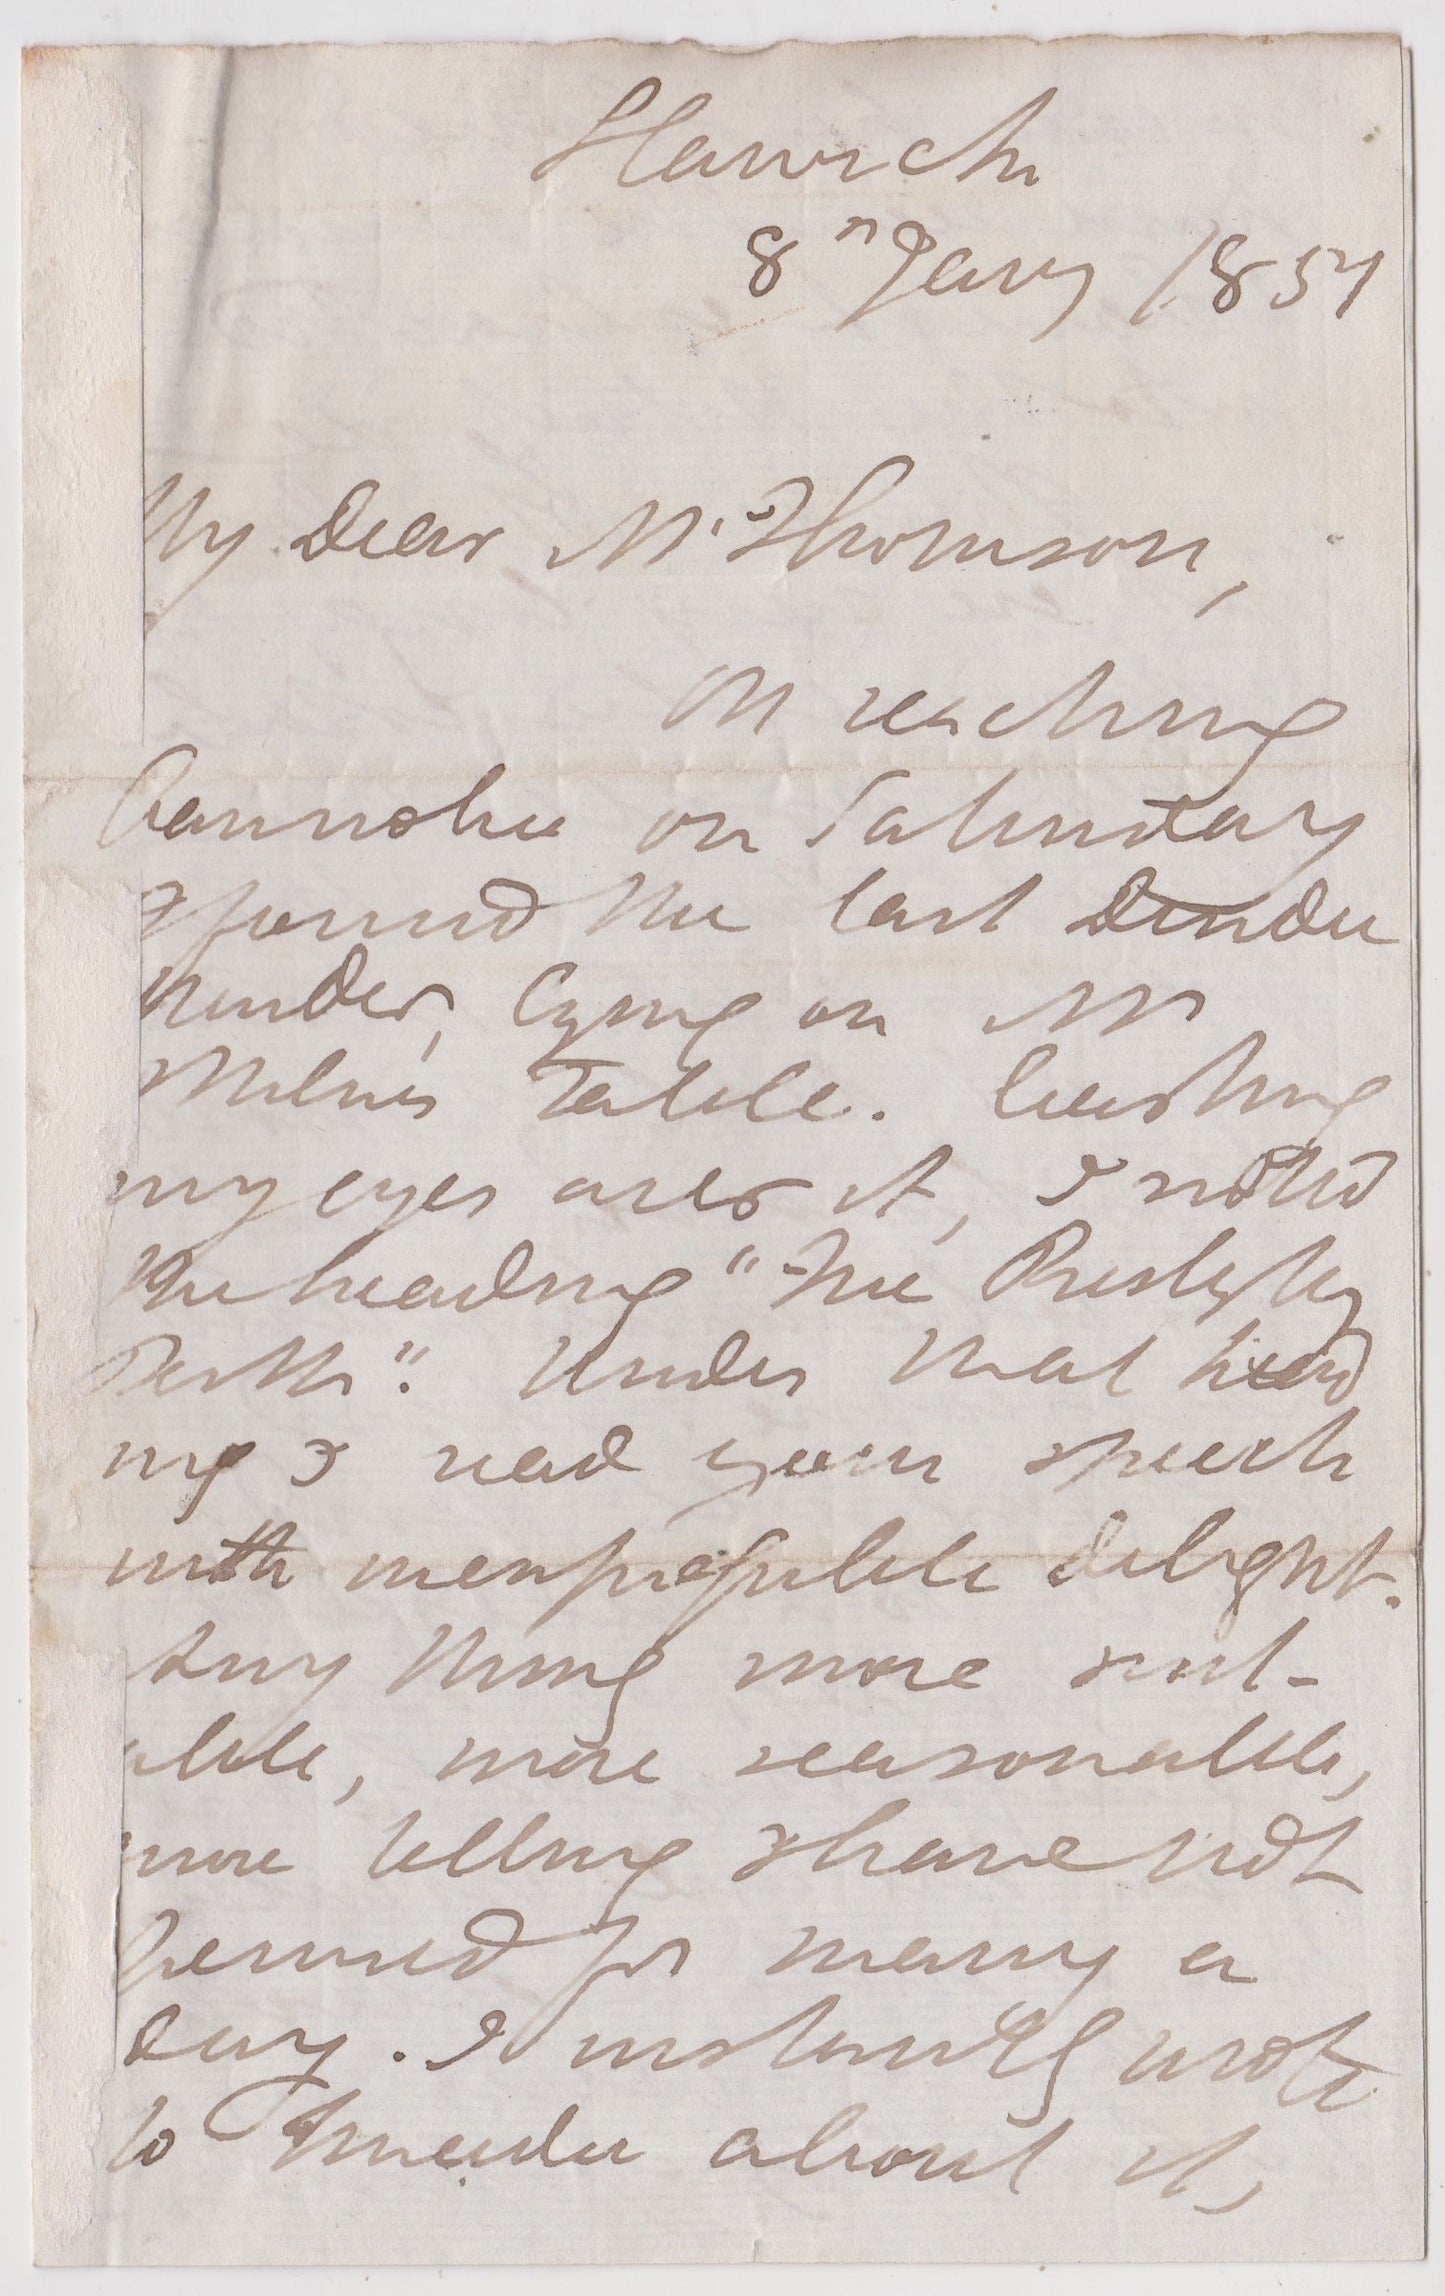 Harwich
8th Jany 1857
My Dear Mr Thomson,
On reaching
on Saturday
I found the last Dundee
lying on Mr
Milne's Table. Casting
my eyes over it, I noticed
the heading "The Presbytery
Perth". Under that head
ing I read your speech
with inexpressible delight.
Any thing more suit-
able, more reasonable,
more telling I have not
perused for many a
day. I instantly wrote
to about it,